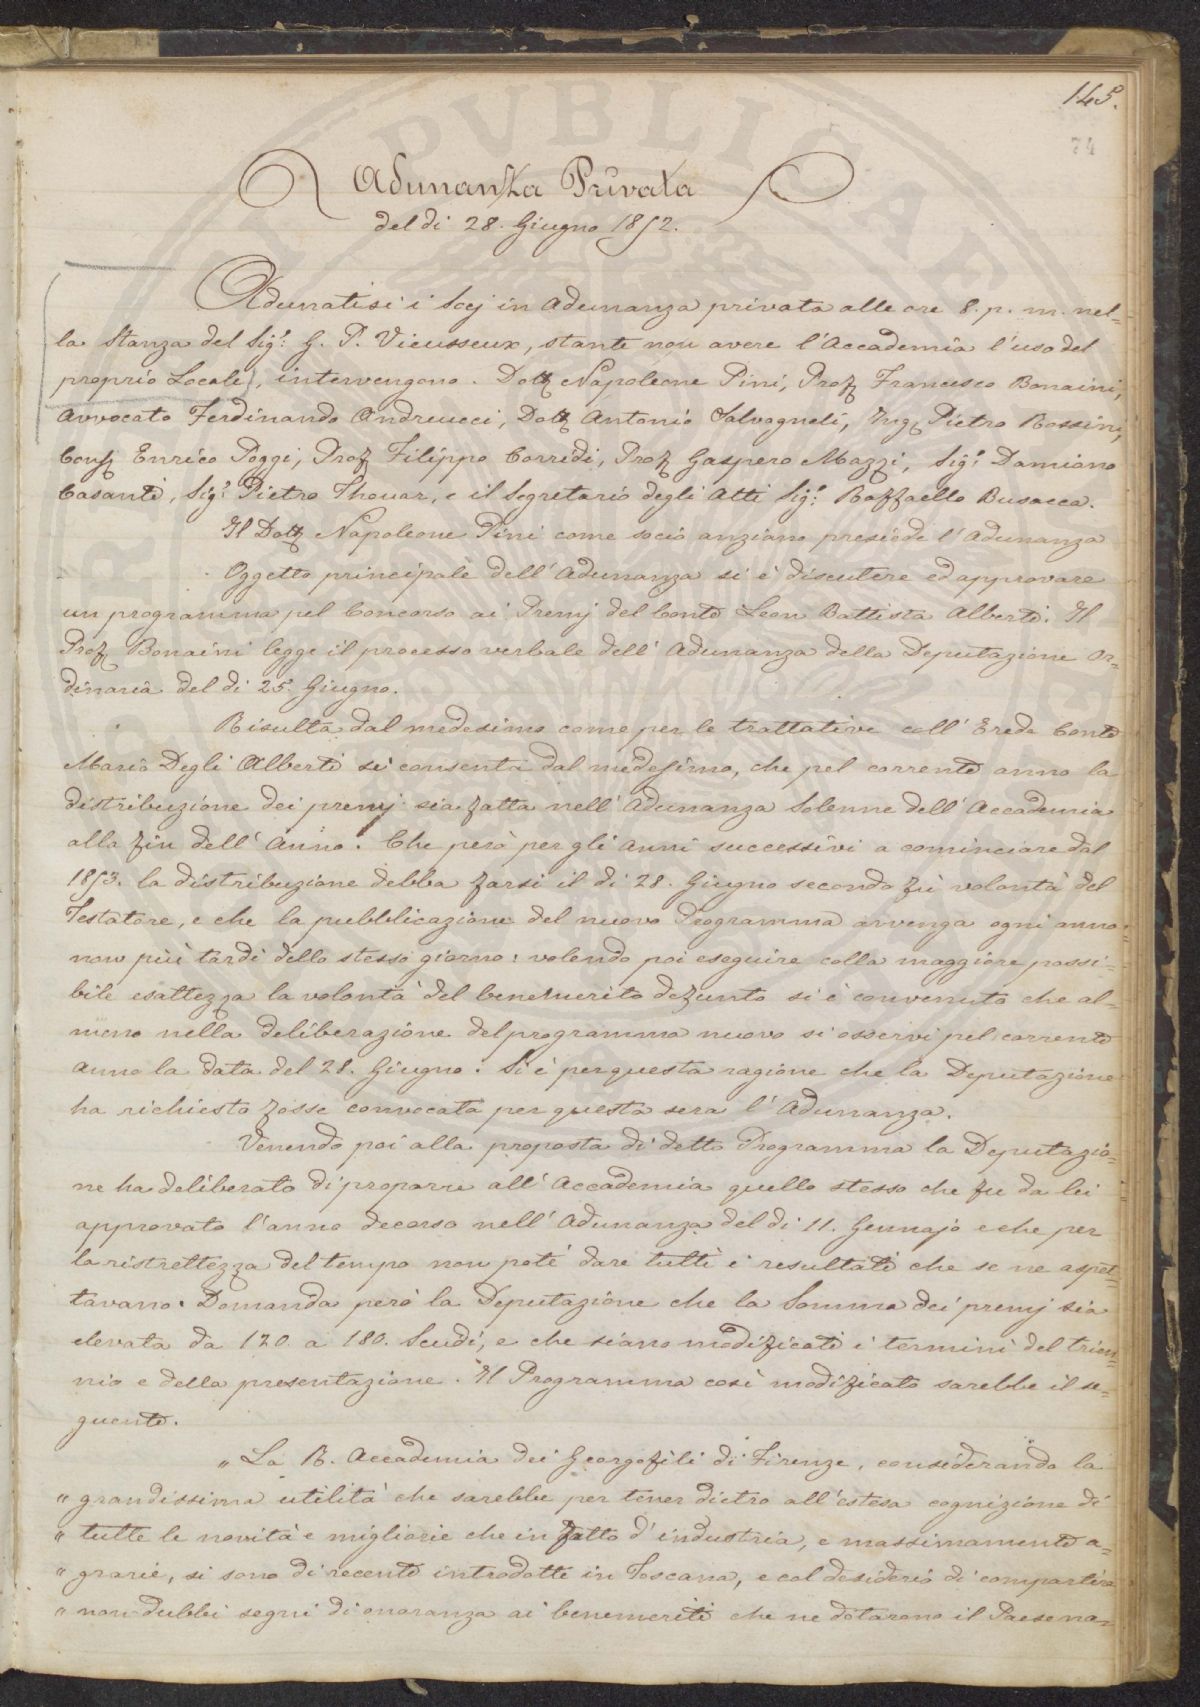 145.
74
Adunanza Privata
del di 28. Giugno 1852.
Adunatisi i Socj in Adunanza privata alle ore 8. p. m. nel-
la Stanza del Sigr. G. P. Vieusseux, stante non avere l'Accademia l'uso del
proprio Locale, intervengono. Dott. Napoleone Pini, Prof. Francesco Bonaini,
Avvocato Ferdinando Andreucci, Dott. Antonio Salvagnoli, Ing. Pietro Rossini,
Cons. Enrico Poggi, Prof. Filippo Corridi, Prof. Gaspero Mazzi, Sigr. Damiano
Casanti, Sigr. Pietro Thouar, e il Segretario degli Atti Sigr. Raffaello Busacca.
Il Dott. Napoleone Pini come socio anziano presiede l'Adunanza
Oggetto principale dell'Adunanza si è discutere ed approvare
un programma pel Concorso ai Premj del Conte Leon Battista Alberti. Il
Prof. Bonaini legge il processo verbale dell'Adunanza della Deputazione Or-
dinaria del di 25. Giugno.
Risulta dal medesimo come per le trattative coll'Erede Conte
Mario Degli Alberti si consenta dal medesimo, che pel corrente anno la
distribuzione dei premj sia fatta nell'Adunanza Solenne dell'Accademia
alla fin dell'Anno. Che però per gli anni successivi a cominciare dal
1853. la distribuzione debba farsi il di 28. Giugno secondo fù volontà del
Testatore, e che la pubblicazione del nuovo Programma avvenga ogni anno
non più tardi dello stesso giorno: volendo poi eseguire colla maggiore possi-
bile esattezza la volontà del benemerito defunto si è convenuto che al-
meno nella deliberazione del programma nuovo si osservi pel corrente
anno la data del 28. Giugno. Si è per questa ragione che la Deputazione
ha richiesto fosse convocata per questa sera l'Adunanza.
Venendo poi alla proposta di detto Programma la Deputazio-
ne ha deliberato di proporre all'Accademia quello stesso che fu da lei
approvato l'anno decorso nell'Adunanza del di 11. Gennajo e che per
la ristrettezza del tempo non poté dare tutti i resultati che se ne aspet-
tavano. Domanda però la Deputazione che la Somma dei premj sia
elevata da 120 a 180. Scudi, e che siano modificati i termini del trien-
nio e della presentazione. Il Programma così modificato sarebbe il se-
guente.
„ La R. Accademia dei Georgofili di Firenze, considerando la
„ grandissima utilità che sarebbe per tener dietro all'estesa cognizione di
„ tutte le novità e migliorie che in fatto d'industria, e massimamente a-
„ grarie, si sono di recente introdotte in Toscana, e col desiderio di compartire
„ non dubbi segni di onoranza ai benemeriti che ne dotarono il Paese no-